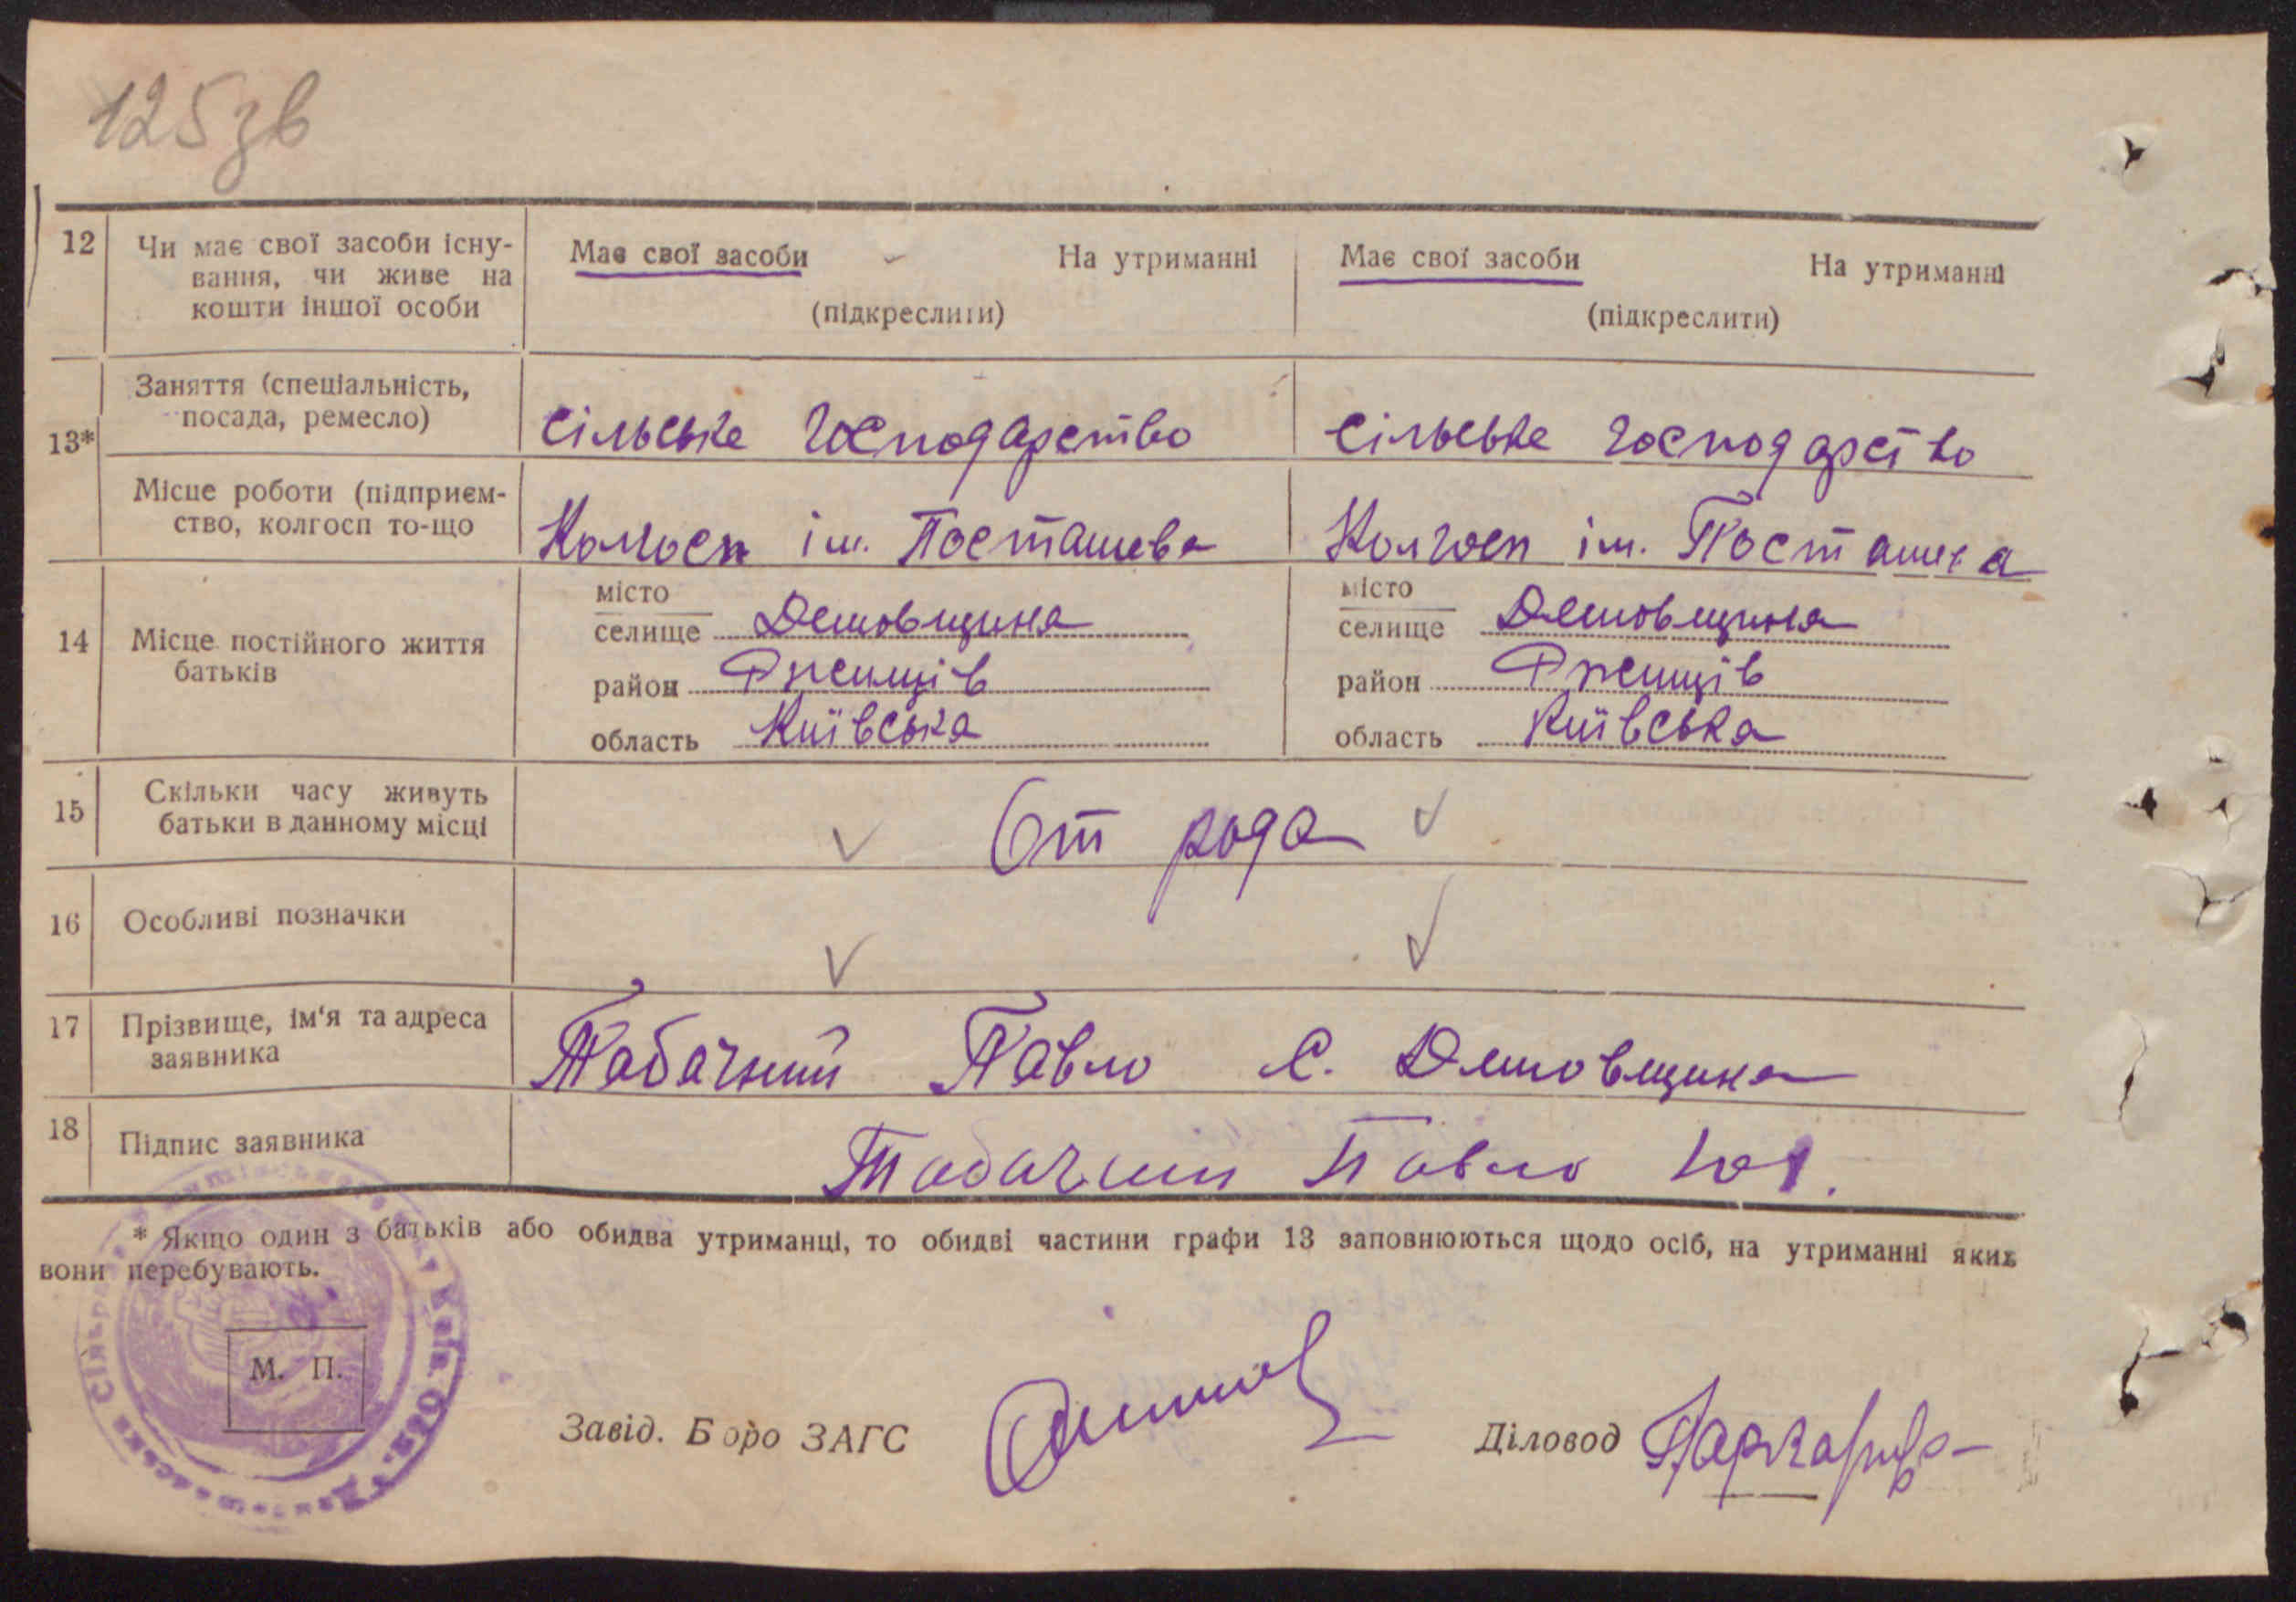 125зв
12 Чи має свої засоби існу- Має свої засоби На утриманні Має свої засоби На утриманні
вання, чи живе на
кошти іншої особи (підкреслити) (підкреслити)
Заняття (спеціальність,
посада, ремесло) сільське господарство сільське господарство
13*
Місце роботи (підприєм-
ство, колгосп то-що Колгосп ім. Посташева Колгосп ім. Посташева
місто місто
14 Місце постійного життя селище Демовщина селище Демовщина
батьків район Ржищів район Ржищів
область Київська область Київська
15 Скільки часу живуть
батьки в данному місці От рода
16 Особливі позначки
17 Прізвище, ім'я та адреса
заявника Табачний Павло С. Демовщина
18 Підпис заявника Табачний Павло
* Якщо один з батьків або обидва утриманці, то обидві частини графи 13 заповнюються щодо осіб, на утриманні яких
вони перебувають.
М. П.
Завід. Бюро ЗАГС Діловод